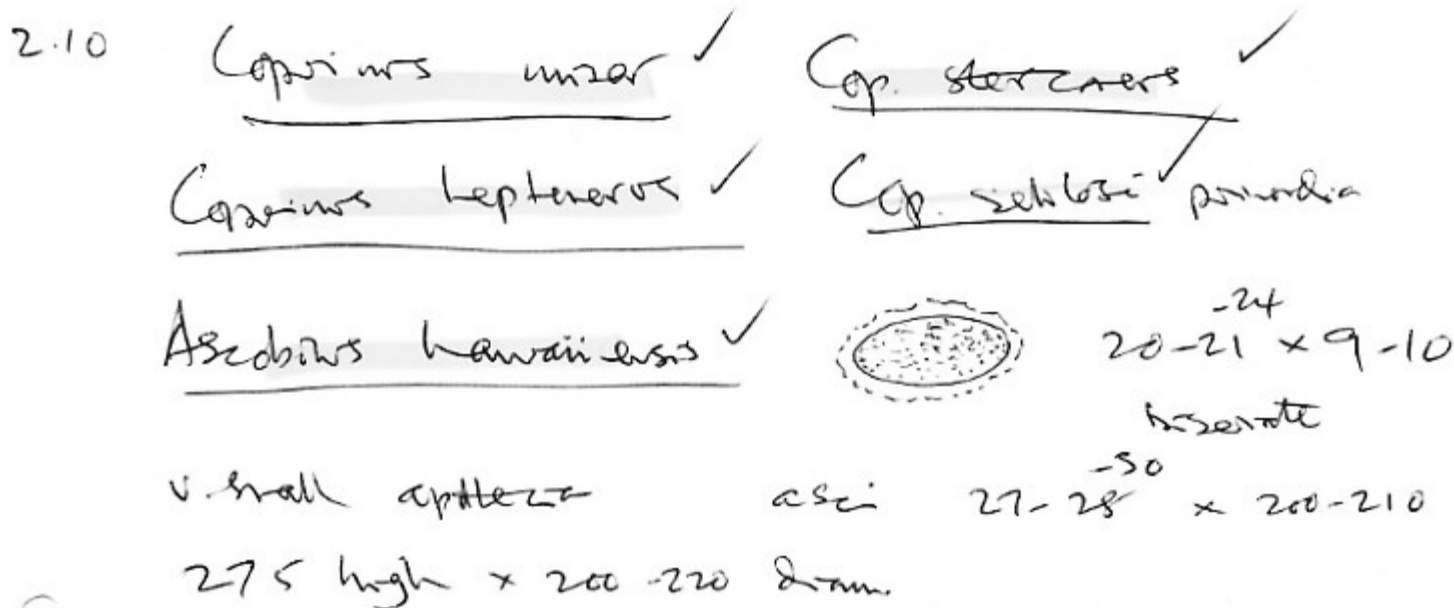 2.10 Coprinus miser ✓ Cop. stercoreus ✓
Coprinus heptemerus ✓ Cop. setulosi ✓ primordia
Ascobolus hawaiiensis ✓ 20-21-24 × 9-10
biseriate
v. small apothecia asci 27-28-30 × 200-210
275 high × 200-220 diam.